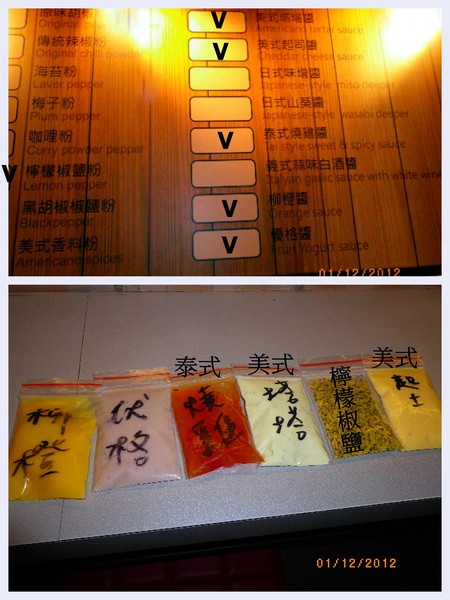 原味胡椒
Original
傳統辣椒粉
Original chilli powder
海苔粉
Laver pepper
梅子粉
Plum pepper
咖哩粉
Curry powder pepper
V 檸檬椒鹽粉
Lemon pepper
黑胡椒椒鹽粉
Blackpepper
美式香料粉
Americano spices
V 美式塔塔醬
Americano tartar sauce
V 美式起司醬
Cheddar cheese sauce
日式味增醬
Japanese-style miso deeper
日式山葵醬
Japanese-style wasabi deeper
V 泰式燒雞醬
Tai style sweet & spicy sauce
義式蒜味白酒醬
Italyan garlic sauce with white wine
V 柳橙醬
Orange sauce
V 優格醬
Fruit Yogurt sauce
01/12/2012
柳橙
伏格
泰式
燒雞
美式
塔塔
檸檬椒鹽
美式
起士
01/12/2012